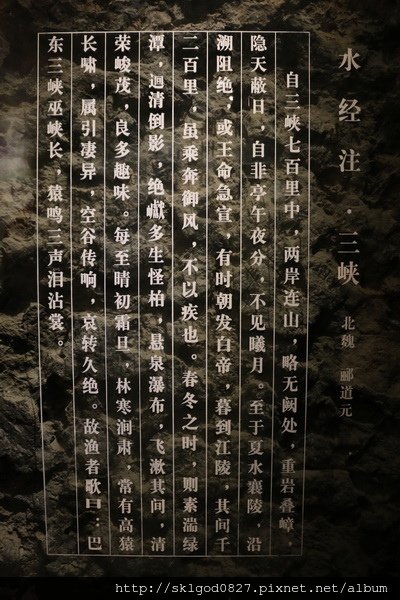 水经注·三峡
北魏 郦道元
自三峡七百里中，两岸连山，略无阙处，重岩叠嶂，
隐天蔽日，自非亭午夜分，不见曦月。至于夏水襄陵，沿
溯阻绝，或王命急宣，有时朝发白帝，暮到江陵，其间千
二百里，虽乘奔御风，不以疾也。春冬之时，则素湍绿
潭，迴清倒影，绝巘多生怪柏，悬泉瀑布，飞漱其间，清
荣峻茂，良多趣味。每至晴初霜旦，林寒涧肃，常有高猿
长啸，属引凄异，空谷传响，哀转久绝。故渔者歌曰：巴
东三峡巫峡长，猿鸣三声泪沾裳。
http://sklgod0827.pixnet.net/album